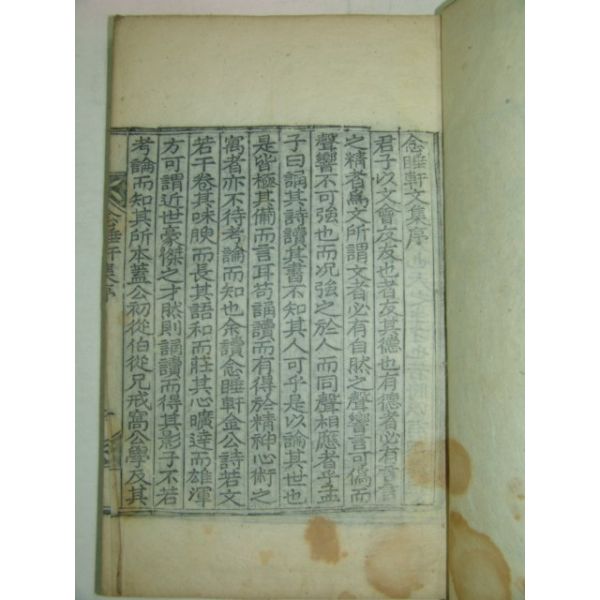 念睡軒文集序
君子以文會友友也者友其德也有德者必有言言
之精者爲文所謂文者必有自然之聲響言可僞而
聲響不可強也而况強之於人而同聲相應者乎孟
子曰誦其詩讀其書不知其人可乎是以論其世也
是皆極其備而言耳苟誦讀而有得於精神心術之
寓者亦不待考論而知也余讀念睡軒金公詩若文
若干卷其味腴而長其語和而莊其心曠達而雄渾
方可謂近世豪傑之才然則誦讀而得其影子不若
考論而知其所本蓋公初從伯從兄戒窩公學及其
念睡軒集序